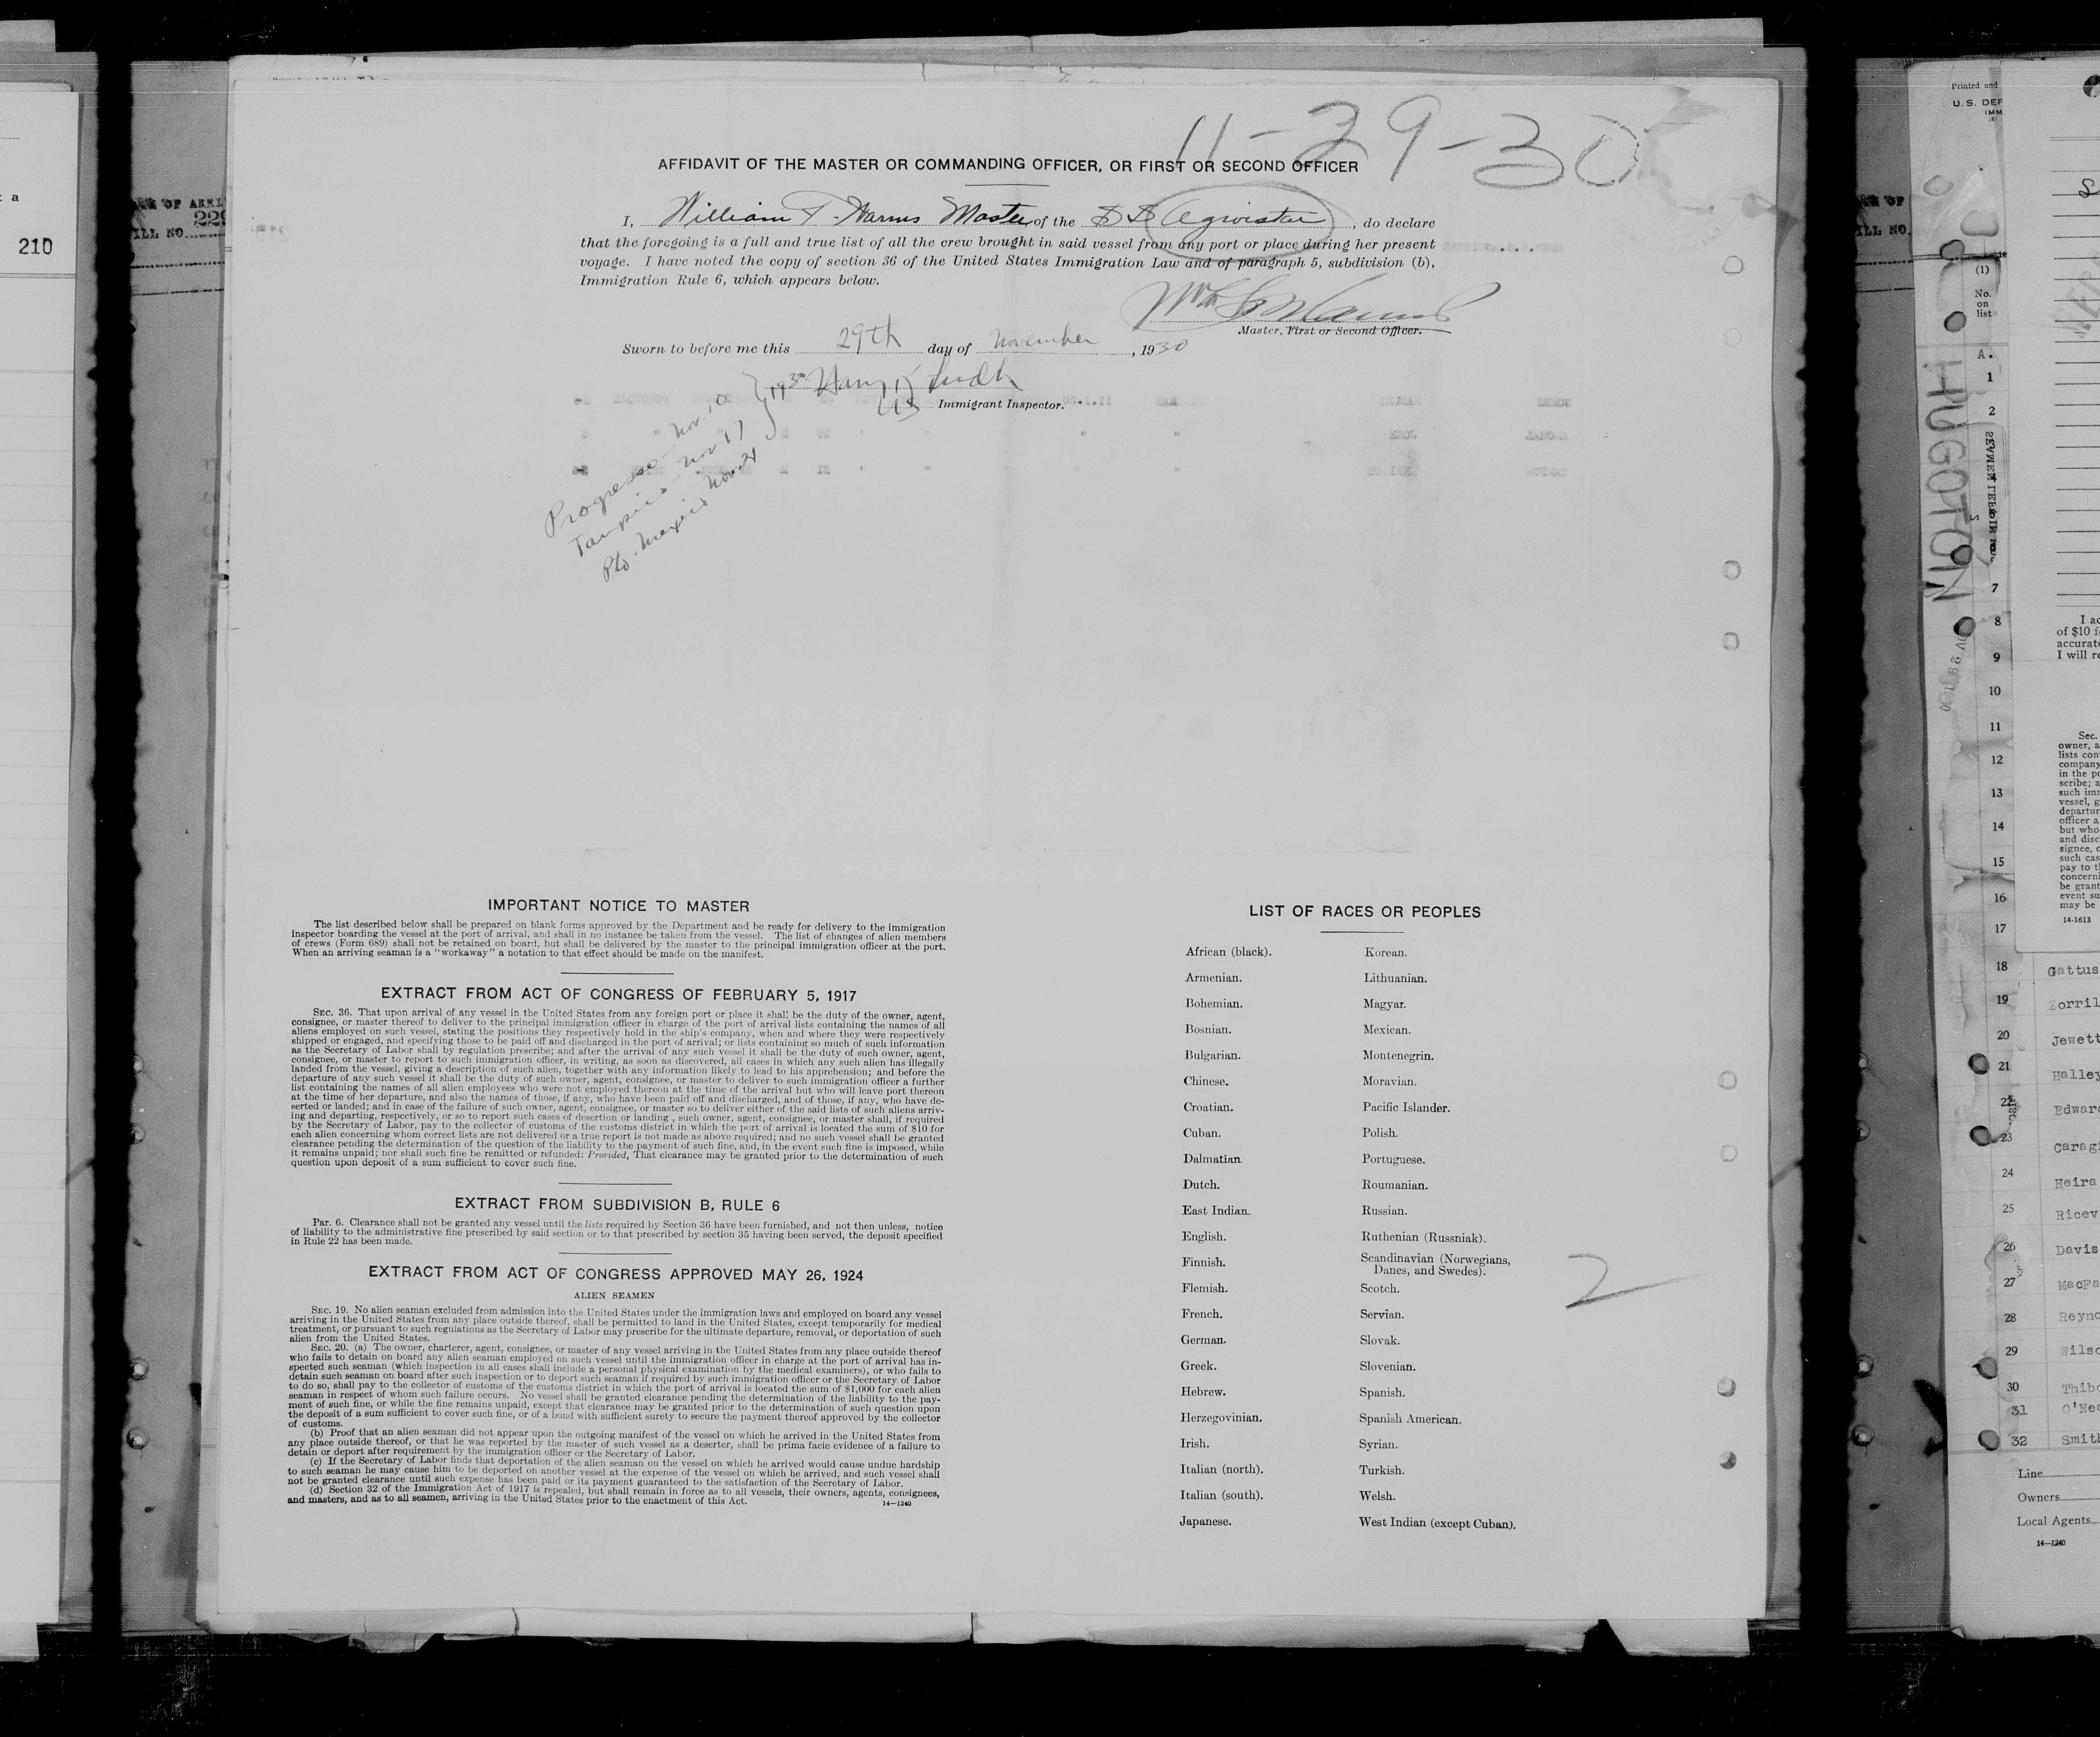 210
11-29-30
AFFIDAVIT OF THE MASTER OR COMMANDING OFFICER, OR FIRST OR SECOND OFFICER
I, William T. Harms Master of the SS Agwistar, do declare
that the foregoing is a full and true list of all the crew brought in said vessel from any port or place during her present
voyage. I have noted the copy of section 36 of the United States Immigration Law and of paragraph 5, subdivision (b),
Immigration Rule 6, which appears below.
Master, First or Second Officer.
Sworn to before me this 29th day of November, 1930
Immigrant Inspector.
Progreso - Nov. 10
Tampico - Nov 17
Pto. Mexico Nov. 21
1930
IMPORTANT NOTICE TO MASTER
The list described below shall be prepared on blank forms approved by the Department and be ready for delivery to the immigration
inspector boarding the vessel at the port of arrival, and shall in no instance be taken from the vessel. The list of changes of alien members
of crews (Form 689) shall not be retained on board, but shall be delivered by the master to the principal immigration officer at the port.
When an arriving seaman is a "workaway" a notation to that effect should be made on the manifest.
EXTRACT FROM ACT OF CONGRESS OF FEBRUARY 5, 1917
SEC. 36. That upon arrival of any vessel in the United States from any foreign port or place it shall be the duty of the owner, agent,
consignee, or master thereof to deliver to the principal immigration officer in charge of the port of arrival lists containing the names of all
aliens employed on such vessel, stating the positions they respectively hold in the ship's company, when and where they were respectively
shipped or engaged, and specifying those to be paid off and discharged in the port of arrival; or lists containing so much of such information
as the Secretary of Labor shall by regulation prescribe; and after the arrival of any such vessel it shall be the duty of such owner, agent,
consignee, or master to report to such immigration officer, in writing, as soon as discovered, all cases in which any such alien has illegally
landed from the vessel, giving a description of such alien, together with any information likely to lead to his apprehension; and before the
departure of any such vessel it shall be the duty of such owner, agent, consignee, or master to deliver to such immigration officer a further
list containing the names of all alien employees who were not employed thereon at the time of the arrival but who will leave port thereon
at the time of her departure, and also the names of those, if any, who have been paid off and discharged, and of those, if any, who have de-
serted or landed; and in case of the failure of such owner, agent, consignee, or master so to deliver either of the said lists of such aliens arriv-
ing and departing, respectively, or so to report such cases of desertion or landing, such owner, agent, consignee, or master shall, if required
by the Secretary of Labor, pay to the collector of customs of the customs district in which the port of arrival is located the sum of $10 for
each alien concerning whom correct lists are not delivered or a true report is not made as above required; and no such vessel shall be granted
clearance pending the determination of the question of the liability to the payment of such fine, and, in the event such fine is imposed, while
it remains unpaid; nor shall such fine be remitted or refunded: Provided, That clearance may be granted prior to the determination of such
question upon deposit of a sum sufficient to cover such fine.
EXTRACT FROM SUBDIVISION B, RULE 6
Par. 6. Clearance shall not be granted any vessel until the lists required by Section 36 have been furnished, and not then unless, notice
of liability to the administrative fine prescribed by said section or to that prescribed by section 35 having been served, the deposit specified
in Rule 22 has been made.
EXTRACT FROM ACT OF CONGRESS APPROVED MAY 26, 1924
ALIEN SEAMEN
SEC. 19. No alien seaman excluded from admission into the United States under the immigration laws and employed on board any vessel
arriving in the United States from any place outside thereof, shall be permitted to land in the United States, except temporarily for medical
treatment, or pursuant to such regulations as the Secretary of Labor may prescribe for the ultimate departure, removal, or deportation of such
alien from the United States.
SEC. 20. (a) The owner, charterer, agent, consignee, or master of any vessel arriving in the United States from any place outside thereof
who fails to detain on board any alien seaman employed on such vessel until the immigration officer in charge at the port of arrival has in-
spected such seaman (which inspection in all cases shall include a personal physical examination by the medical examiners), or who fails to
detain such seaman on board after such inspection or to deport such seaman if required by such immigration officer or the Secretary of Labor
to do so, shall pay to the collector of customs of the customs district in which the port of arrival is located the sum of $1,000 for each alien
seaman in respect of whom such failure occurs. No vessel shall be granted clearance pending the determination of the liability to the pay-
ment of such fine, or while the fine remains unpaid, except that clearance may be granted prior to the determination of such question upon
the deposit of a sum sufficient to cover such fine, or of a bond with sufficient surety to secure the payment thereof approved by the collector
of customs.
(b) Proof that an alien seaman did not appear upon the outgoing manifest of the vessel on which he arrived in the United States from
any place outside thereof, or that he was reported by the master of such vessel as a deserter, shall be prima facie evidence of a failure to
detain or deport after requirement by the immigration officer or the Secretary of Labor.
(c) If the Secretary of Labor finds that deportation of the alien seaman on the vessel on which he arrived would cause undue hardship
to such seaman he may cause him to be deported on another vessel at the expense of the vessel on which he arrived, and such vessel shall
not be granted clearance until such expense has been paid or its payment guaranteed to the satisfaction of the Secretary of Labor.
(d) Section 32 of the Immigration Act of 1917 is repealed, but shall remain in force as to all vessels, their owners, agents, consignees,
and masters, and as to all seamen, arriving in the United States prior to the enactment of this Act.
14—1240
LIST OF RACES OR PEOPLES
African (black). Korean.
Armenian. Lithuanian.
Bohemian. Magyar.
Bosnian. Mexican.
Bulgarian. Montenegrin.
Chinese. Moravian.
Croatian. Pacific Islander.
Cuban. Polish.
Dalmatian. Portuguese.
Dutch. Roumanian.
East Indian. Russian.
English. Ruthenian (Russniak).
Finnish. Scandinavian (Norwegians,
Danes, and Swedes).
Flemish. Scotch.
French. Servian.
German. Slovak.
Greek. Slovenian.
Hebrew. Spanish.
Herzegovinian. Spanish American.
Irish. Syrian.
Italian (north). Turkish.
Italian (south). Welsh.
Japanese. West Indian (except Cuban).
2
Printed and
HUGOTON
(1)
No.
on
list
1
2
7
8
9
10
11
12
13
14
15
16
17
14-1613
18 Gattus
19 Zorril
20 Jewett
21 Halley
22 Edward
23 Carag
24 Heira
25 Ricev
26 Davis
27 MacFa
28 Reyno
29 Wilso
30 Thibo
31 O'Nea
32 Smith
Line
Owners
Local Agents
14—1240